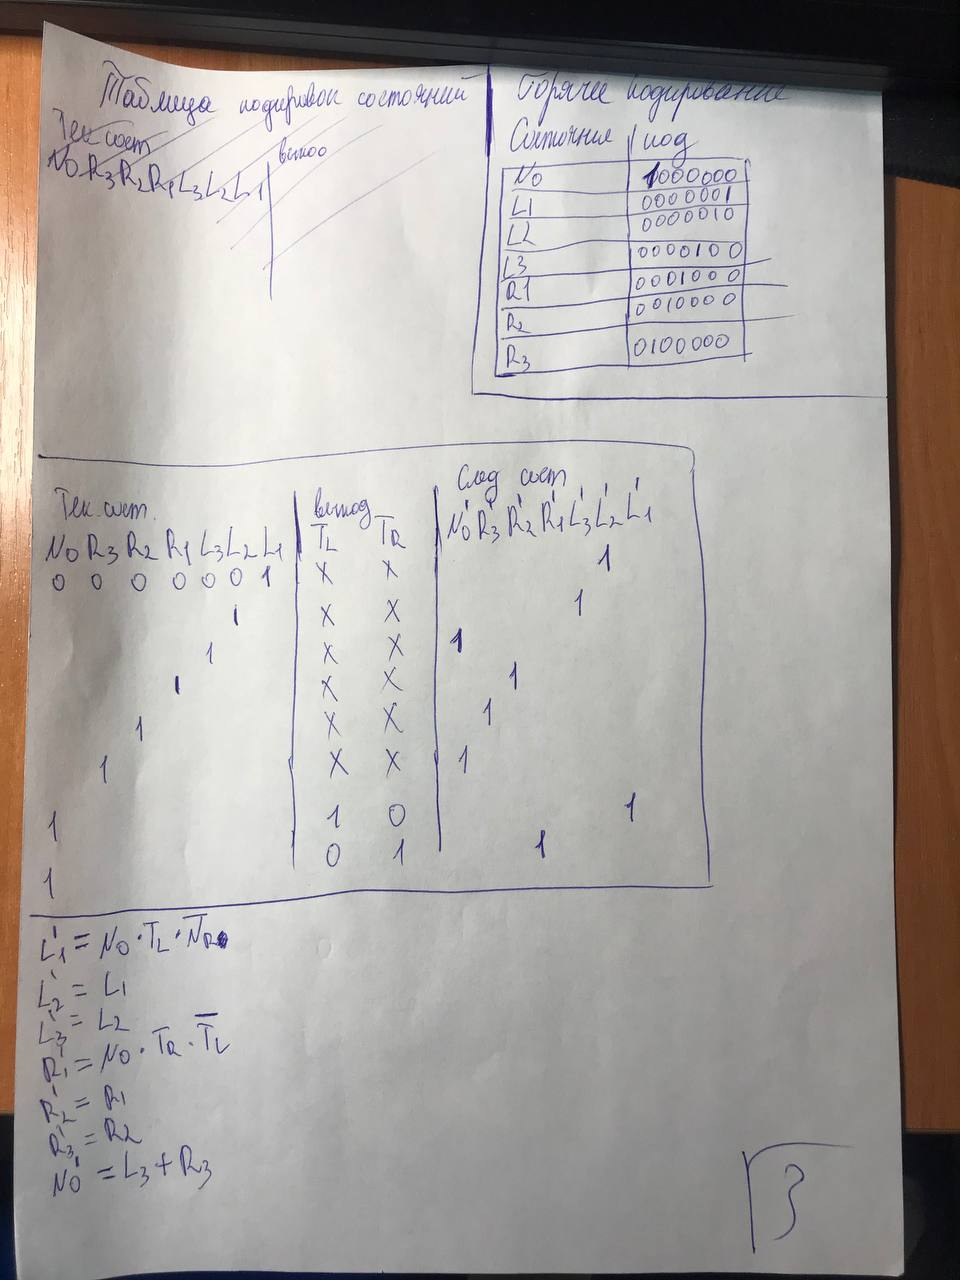 Таблица кодировок состояний
Тек сост
выход
N0 R3 R2 R1 L3 L2 L1
Горячее кодирование
Состояние код
N0 1000000
L1 0000001
L2 0000010
L3 0000100
R1 0001000
R2 0010000
R3 0100000
Тек. сост. выход След сост
N0 R3 R2 R1 L3 L2 L1 TL TR N0' R3' R2' R1' L3' L2' L1'
0 0 0 0 0 0 1 X X 1
1 X X 1
1 X X 1
1 X X 1
1 X X 1
1 X X 1
1 1 0 1
1 0 1 1
L1' = N0 · TL · N̅R̅
L2' = L1
L3' = L2
R1' = N0 · TR · T̅L̅
R2' = R1
R3' = R2
N0' = L3 + R3
3